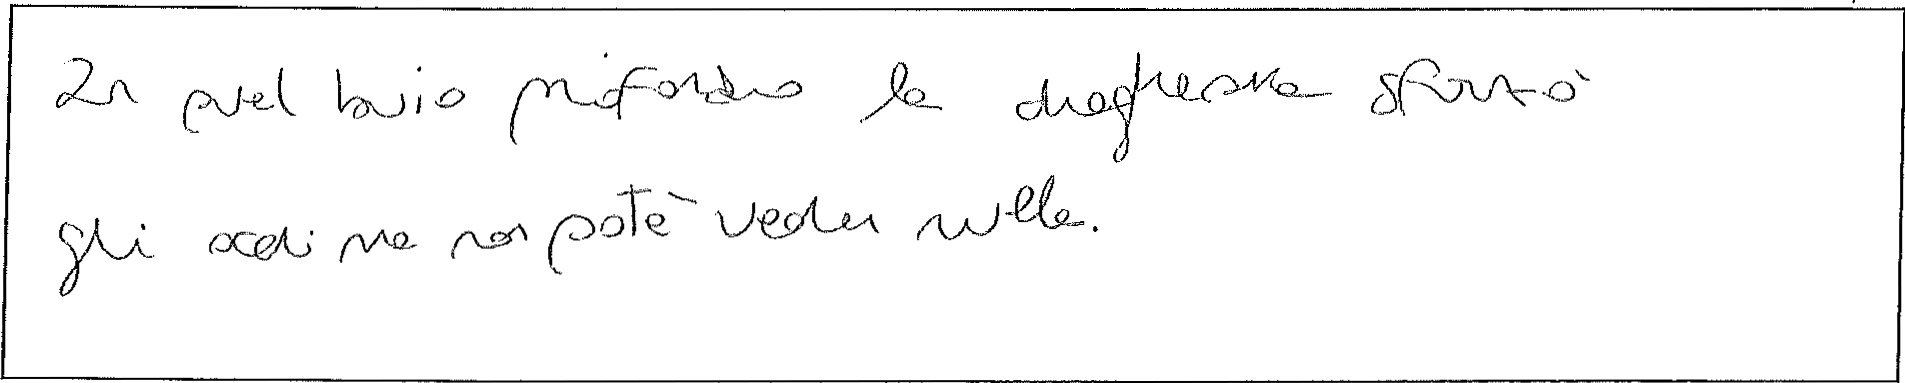 In quel buio profondo la draghessa sforzò
gli occhi ma non potè veder nulla.